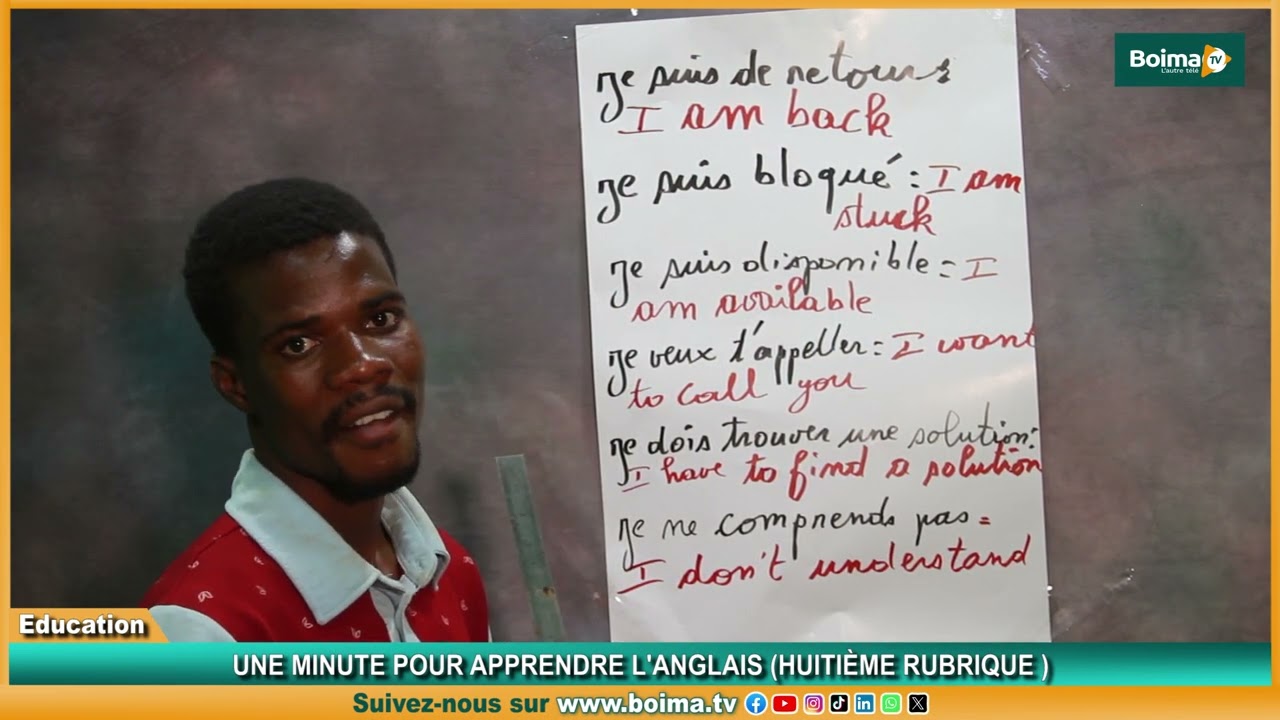 Boima TV
L'autre télé
Je suis de retour :
I am back
Je suis bloqué : I am
stuck
Je suis disponible = I
am available
Je veux t'appeller = I want
to call you
Je dois trouver une solution :
I have to find a solution
Je ne comprends pas =
I don't understand
Education
UNE MINUTE POUR APPRENDRE L'ANGLAIS (HUITIÈME RUBRIQUE )
Suivez-nous sur www.boima.tv